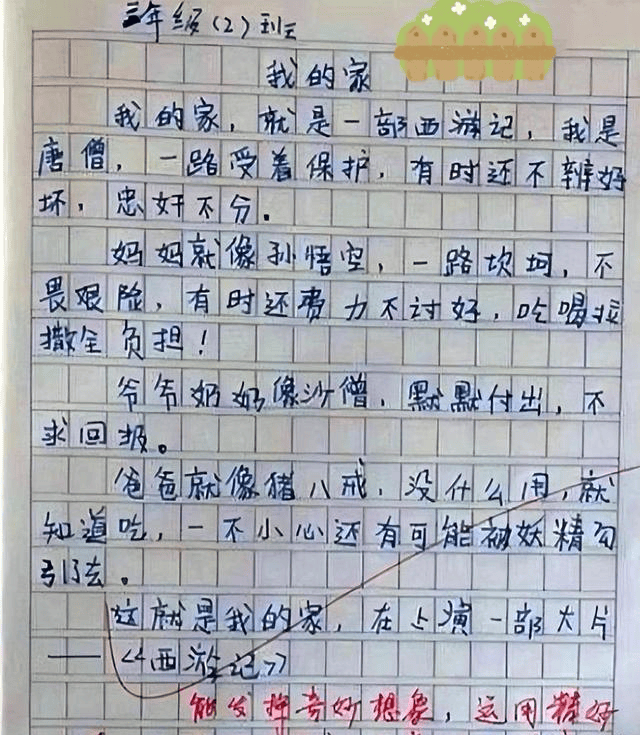 三年级(2)班
我的家
我的家，就是一部西游记，我是
唐僧，一路受着保护，有时还不辨好
坏，忠奸不分。
妈妈就像孙悟空，一路坎坷，不
畏艰险，有时还费力不讨好，吃喝拉
撒全负担！
爷爷奶奶像沙僧，默默付出，不
求回报。
爸爸就像猪八戒，没什么用，就
知道吃，一不小心还有可能被妖精勾
引了去。
这就是我的家，在上演一部大片
——《西游记》
能发挥奇妙想象，运用精好